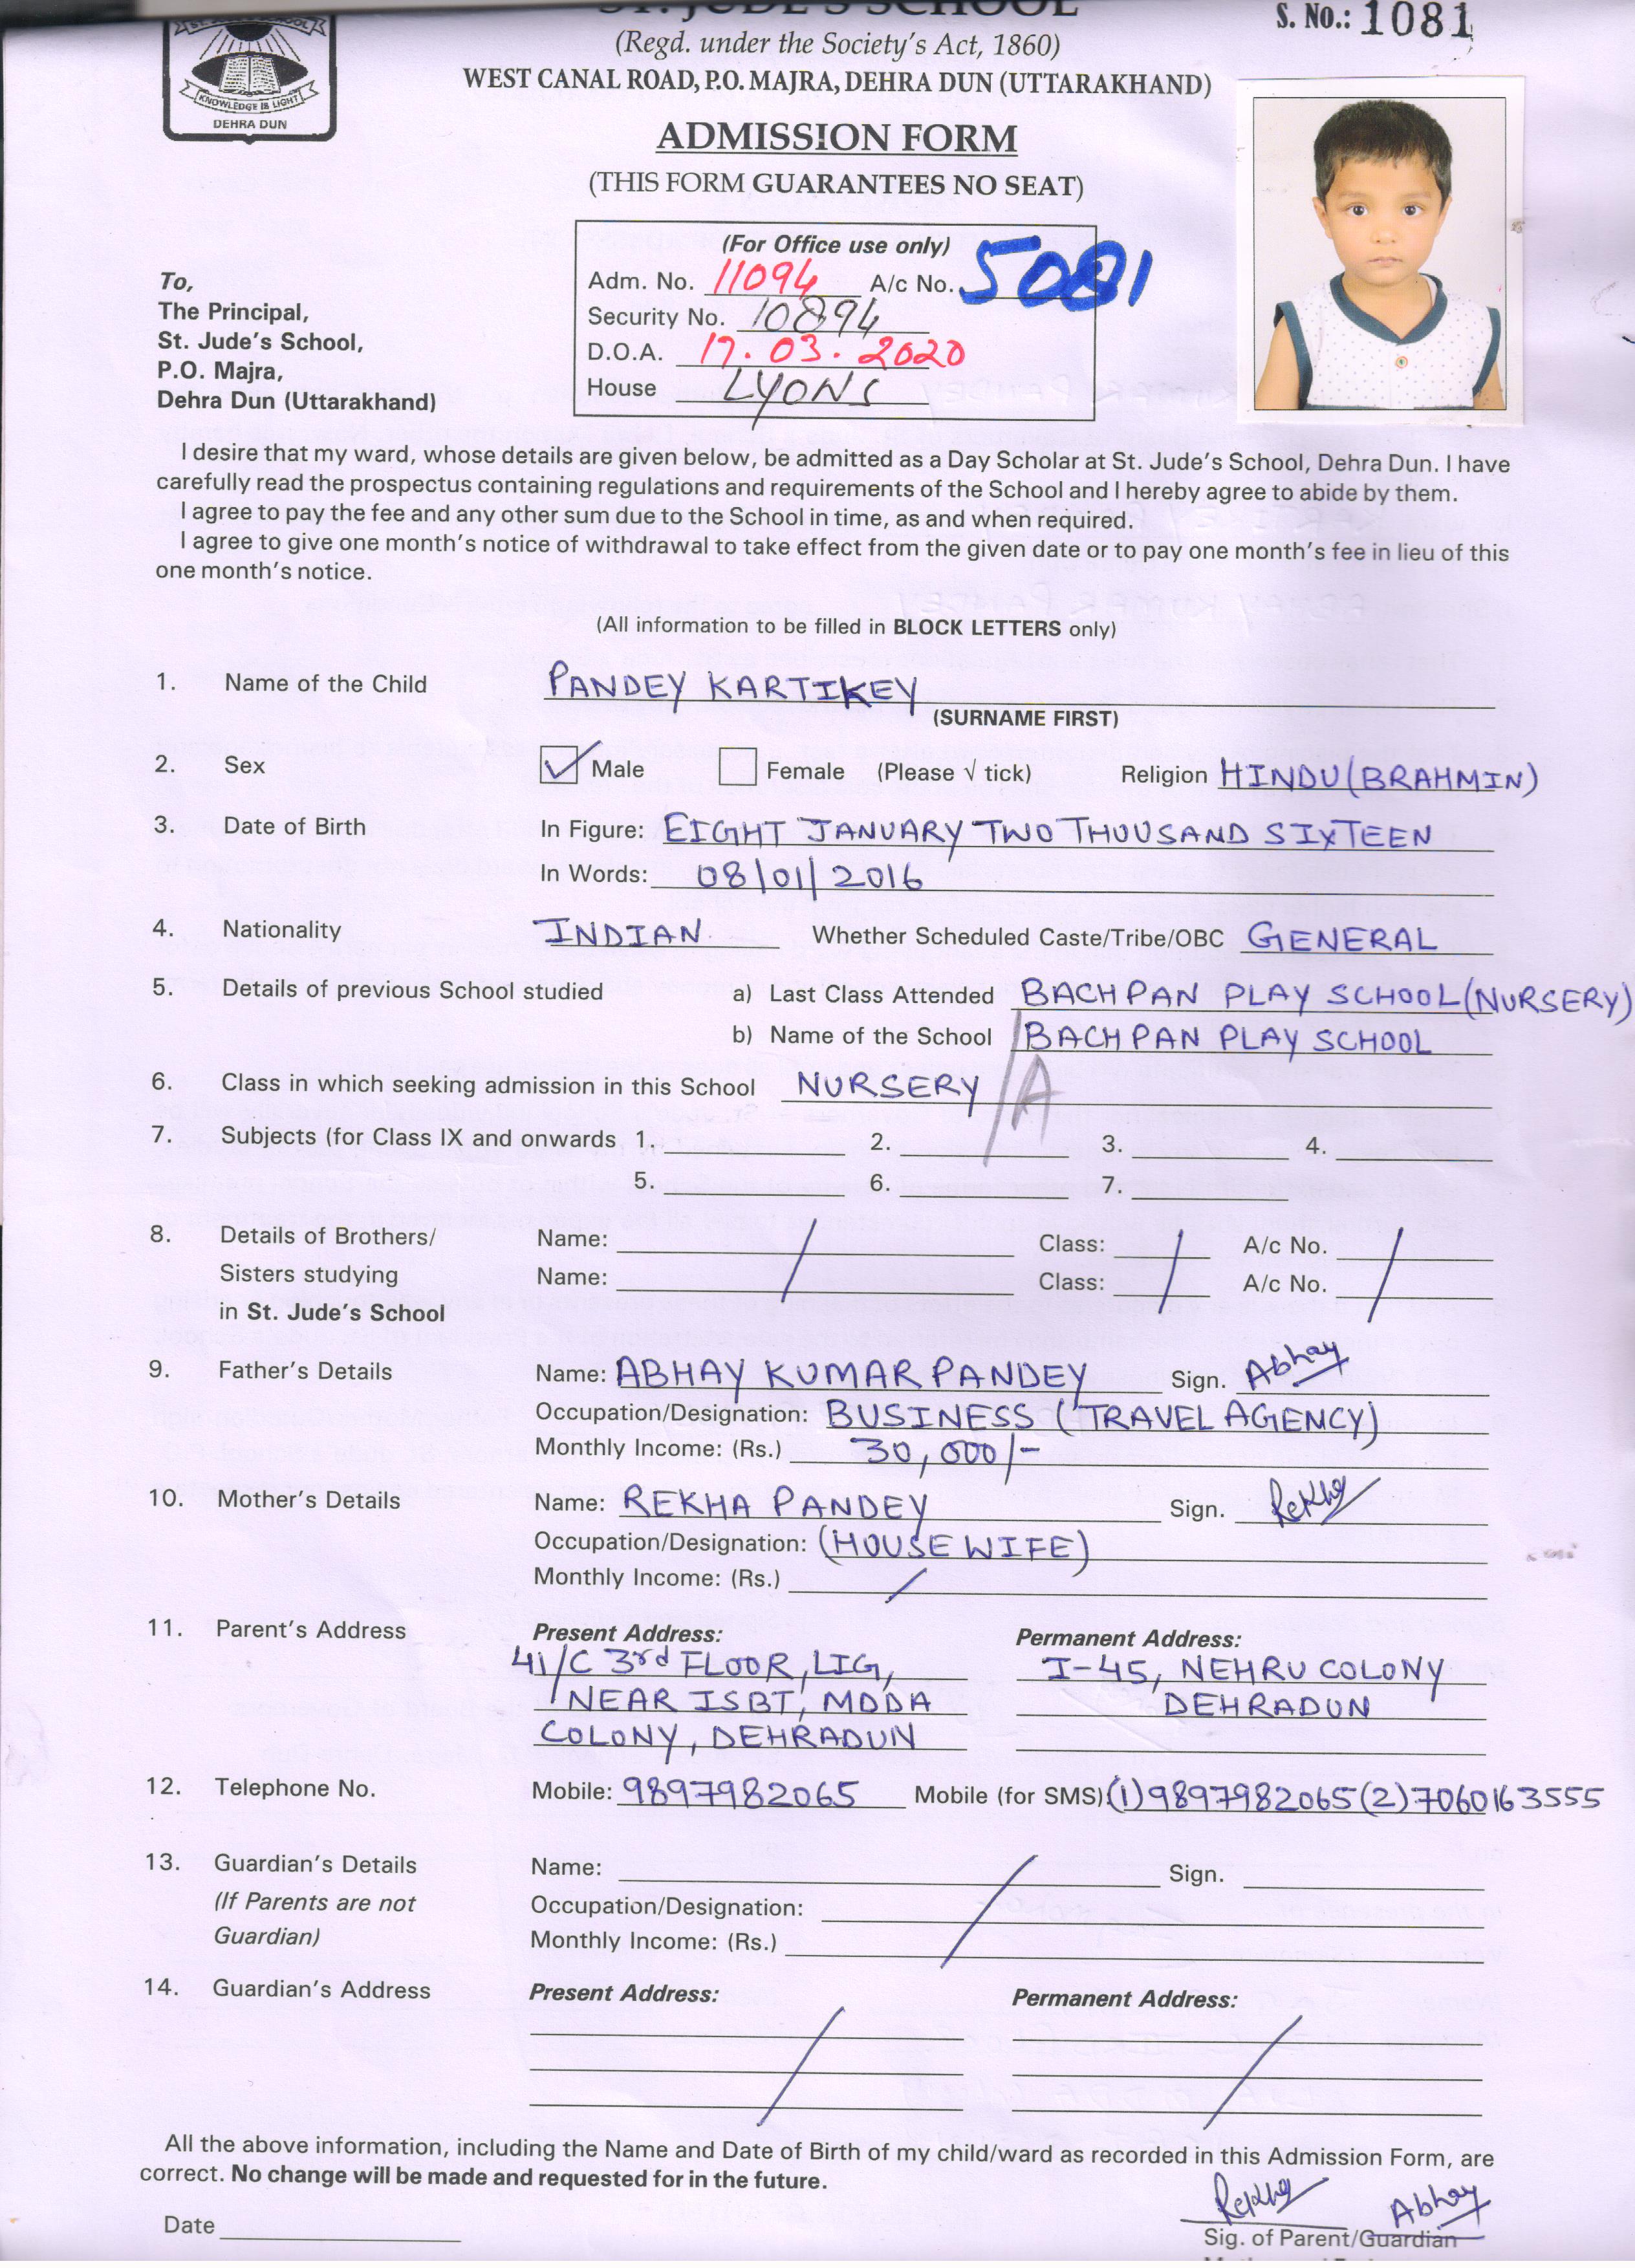 ST. JUDE'S SCHOOL
S. No.: 1081
(Regd. under the Society's Act, 1860)
WEST CANAL ROAD, P.O. MAJRA, DEHRA DUN (UTTARAKHAND)
KNOWLEDGE IS LIGHT
DEHRA DUN
ADMISSION FORM
(THIS FORM GUARANTEES NO SEAT)
(For Office use only)
Adm. No. 11094 A/c No. 5081
Security No. 10894
D.O.A. 17.03.2020
House LYONS
To,
The Principal,
St. Jude's School,
P.O. Majra,
Dehra Dun (Uttarakhand)
I desire that my ward, whose details are given below, be admitted as a Day Scholar at St. Jude's School, Dehra Dun. I have
carefully read the prospectus containing regulations and requirements of the School and I hereby agree to abide by them.
I agree to pay the fee and any other sum due to the School in time, as and when required.
I agree to give one month's notice of withdrawal to take effect from the given date or to pay one month's fee in lieu of this
one month's notice.
(All information to be filled in BLOCK LETTERS only)
1. Name of the Child PANDEY KARTIKEY
(SURNAME FIRST)
2. Sex ✓ Male Female (Please √ tick) Religion HINDU (BRAHMIN)
3. Date of Birth In Figure: EIGHT JANUARY TWO THOUSAND SIXTEEN
In Words: 08/01/2016
4. Nationality INDIAN Whether Scheduled Caste/Tribe/OBC GENERAL
5. Details of previous School studied a) Last Class Attended BACHPAN PLAY SCHOOL (NURSERY)
b) Name of the School BACHPAN PLAY SCHOOL
6. Class in which seeking admission in this School NURSERY /A
7. Subjects (for Class IX and onwards 1. 2. 3. 4.
5. 6. 7.
8. Details of Brothers/ Name: Class: A/c No.
Sisters studying Name: Class: A/c No.
in St. Jude's School
9. Father's Details Name: ABHAY KUMAR PANDEY Sign. Abhay
Occupation/Designation: BUSINESS (TRAVEL AGENCY)
Monthly Income: (Rs.) 30,000/-
10. Mother's Details Name: REKHA PANDEY Sign. Rekha
Occupation/Designation: (HOUSE WIFE)
Monthly Income: (Rs.) /
11. Parent's Address Present Address: Permanent Address:
41/C 3rd FLOOR, LIG, I-45, NEHRU COLONY
NEAR ISBT, MDDA DEHRADUN
COLONY, DEHRADUN
12. Telephone No. Mobile: 9897982065 Mobile (for SMS) (1) 9897982065 (2) 7060163555
13. Guardian's Details Name: Sign.
(If Parents are not Occupation/Designation:
Guardian) Monthly Income: (Rs.)
14. Guardian's Address Present Address: Permanent Address:
All the above information, including the Name and Date of Birth of my child/ward as recorded in this Admission Form, are
correct. No change will be made and requested for in the future.
Rekha Abhay
Date Sig. of Parent/Guardian